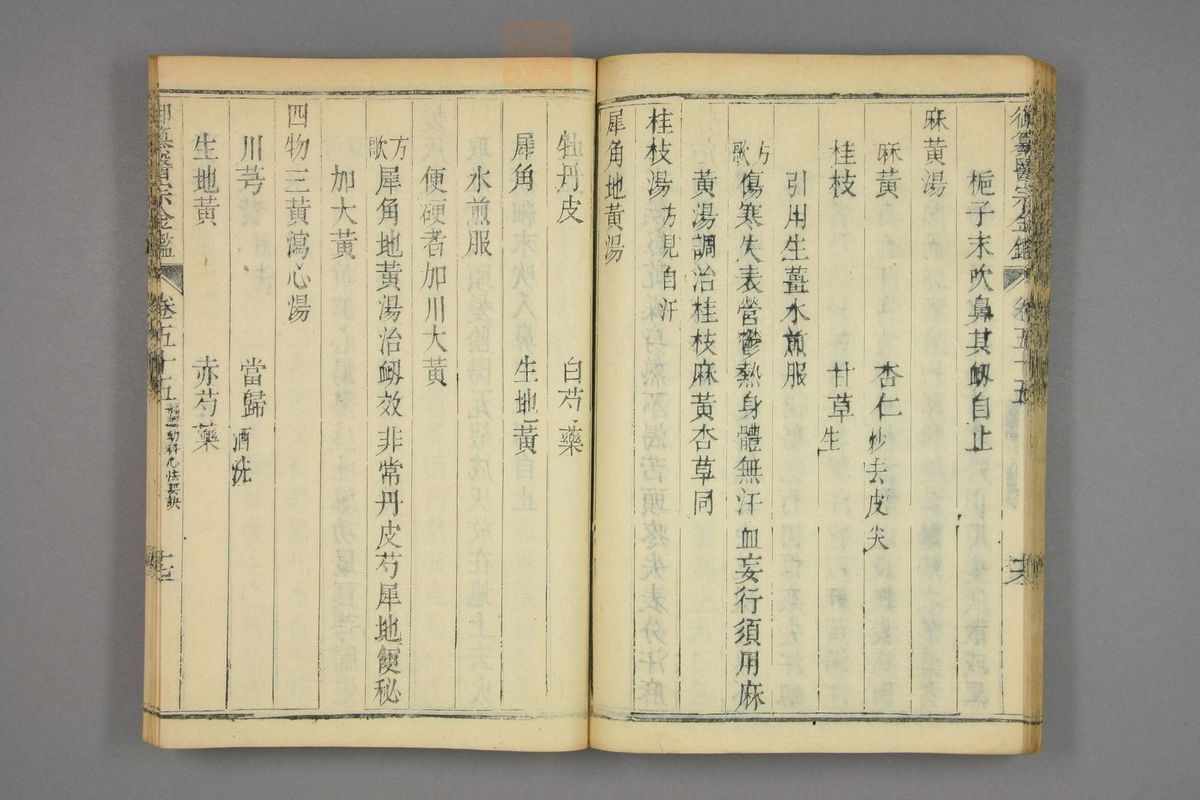 御纂醫宗金鑑 卷五十五 十六
梔子末吹鼻其衂自止
麻黃湯
麻黃 杏仁炒去皮尖
桂枝 甘草生
引用生薑水煎服
方歌 傷寒失表營鬱熱身體無汗血妄行須用麻
黃湯調治桂枝麻黃杏草同
桂枝湯方見自汗
犀角地黃湯
牡丹皮 白芍藥
犀角 生地黃
水煎服
便硬者加川大黃
方歌 犀角地黃湯治衂效非常丹皮芍犀地便秘
加大黃
四物三黃瀉心湯
川芎 當歸酒洗
生地黃 赤芍藥
御纂醫宗金鑑 卷五十五 幼科心法要訣 十七